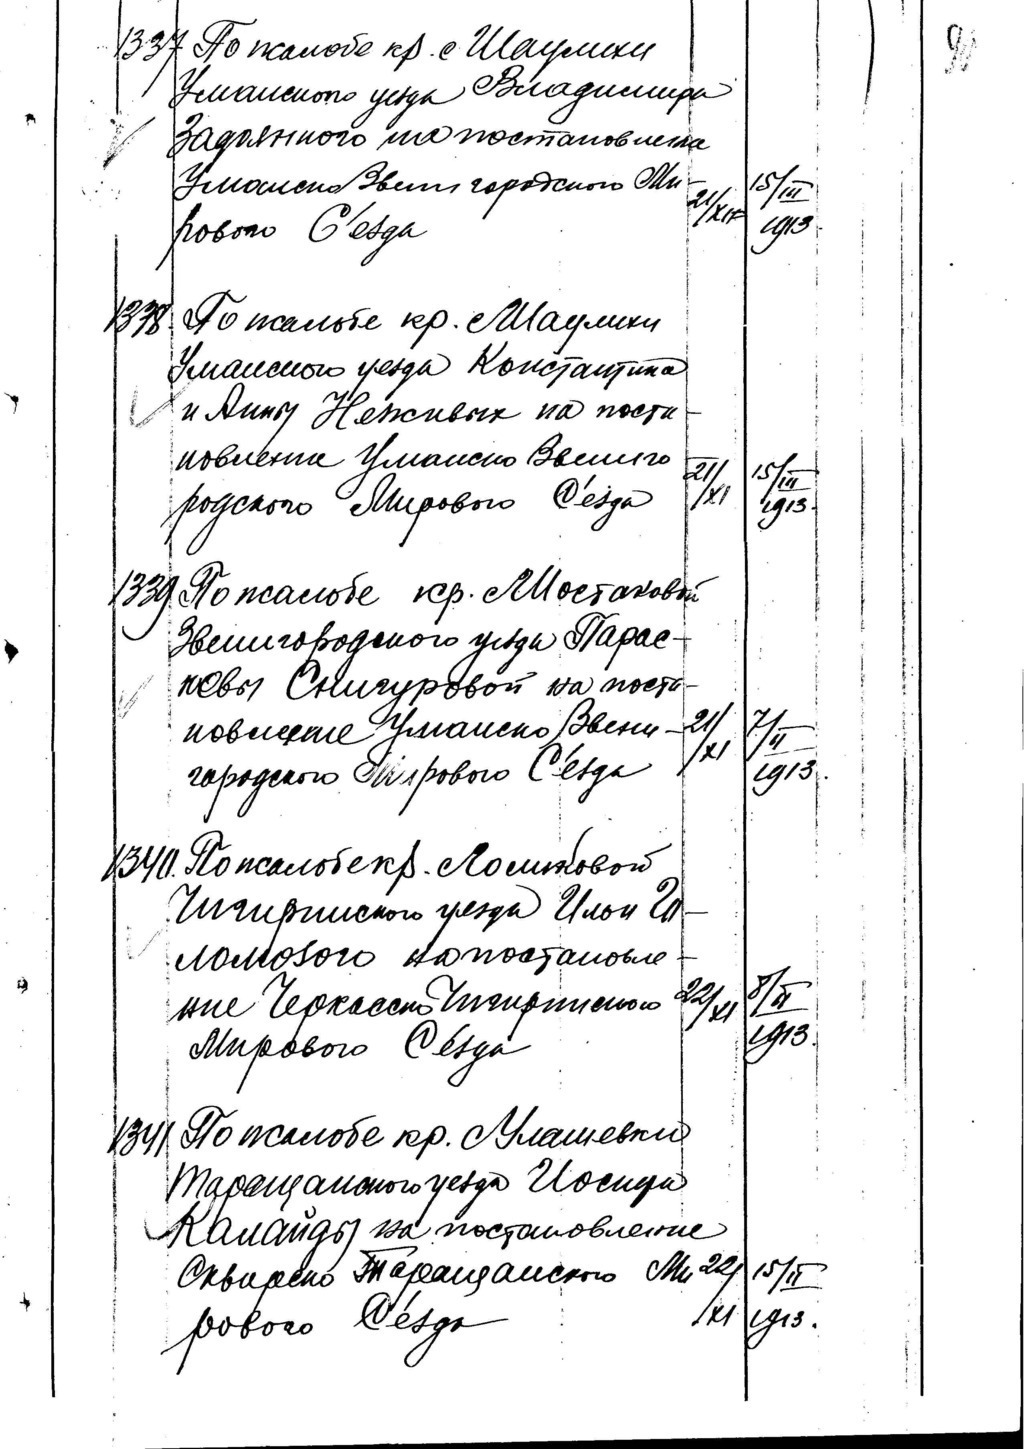 1337 По жалобе кр. с Шаулихи
Уманского уезда Владимира
на постановлени
Уманско Звенигородского Ми- 21/XI 15/III
рового С'езда 1913.
1338. По жалобе кр. с Шаулихи
Уманского уезда Константина
и Анны Неживых на поста-
новление Уманско Звениго
родского Мирового С'езда 21/XI 15/III 1913.
1339 По жалобе кр. с Мостаковой
Звенигородского уезда Парас-
ковы Снигуровой на поста-
новление Уманско Звени- 21/XI 7/II
городского Мирового С'езда 1913.
1340. По жалобе кр. с
Чигиринского уезда Ильи Га-
ломозого на постановле-
ние Черкасско Чигиринского 22/XI 8/II
Мирового С'езда 1913.
1341 По жалобе кр. с Улашевки
Таращанского уезда Иосифа
Калайды на постановление
Сквирско Таращанского Ми 22/XI 15/II
рового С'езда 1913.